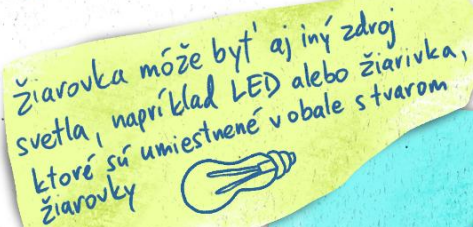 žiarovka môže byť aj iný zdroj
svetla, napríklad LED alebo žiarivka,
ktoré sú umiestnené v obale s tvarom
žiarovky